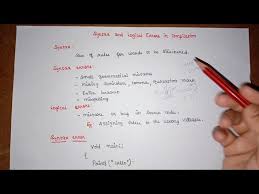 Syntax and Logical Errors in Compilation
Syntax:
Set of rules for words to be structured.
Syntax errors:
- Small grammatical mistakes
- Missing semicolon, comma, quotation mark
- Extra
- Misspelling
Logical errors:
- mistake or bug in
Eg: Assigning value to the wrong variable.
Syntax error
Void main()
{
Printf("hello")